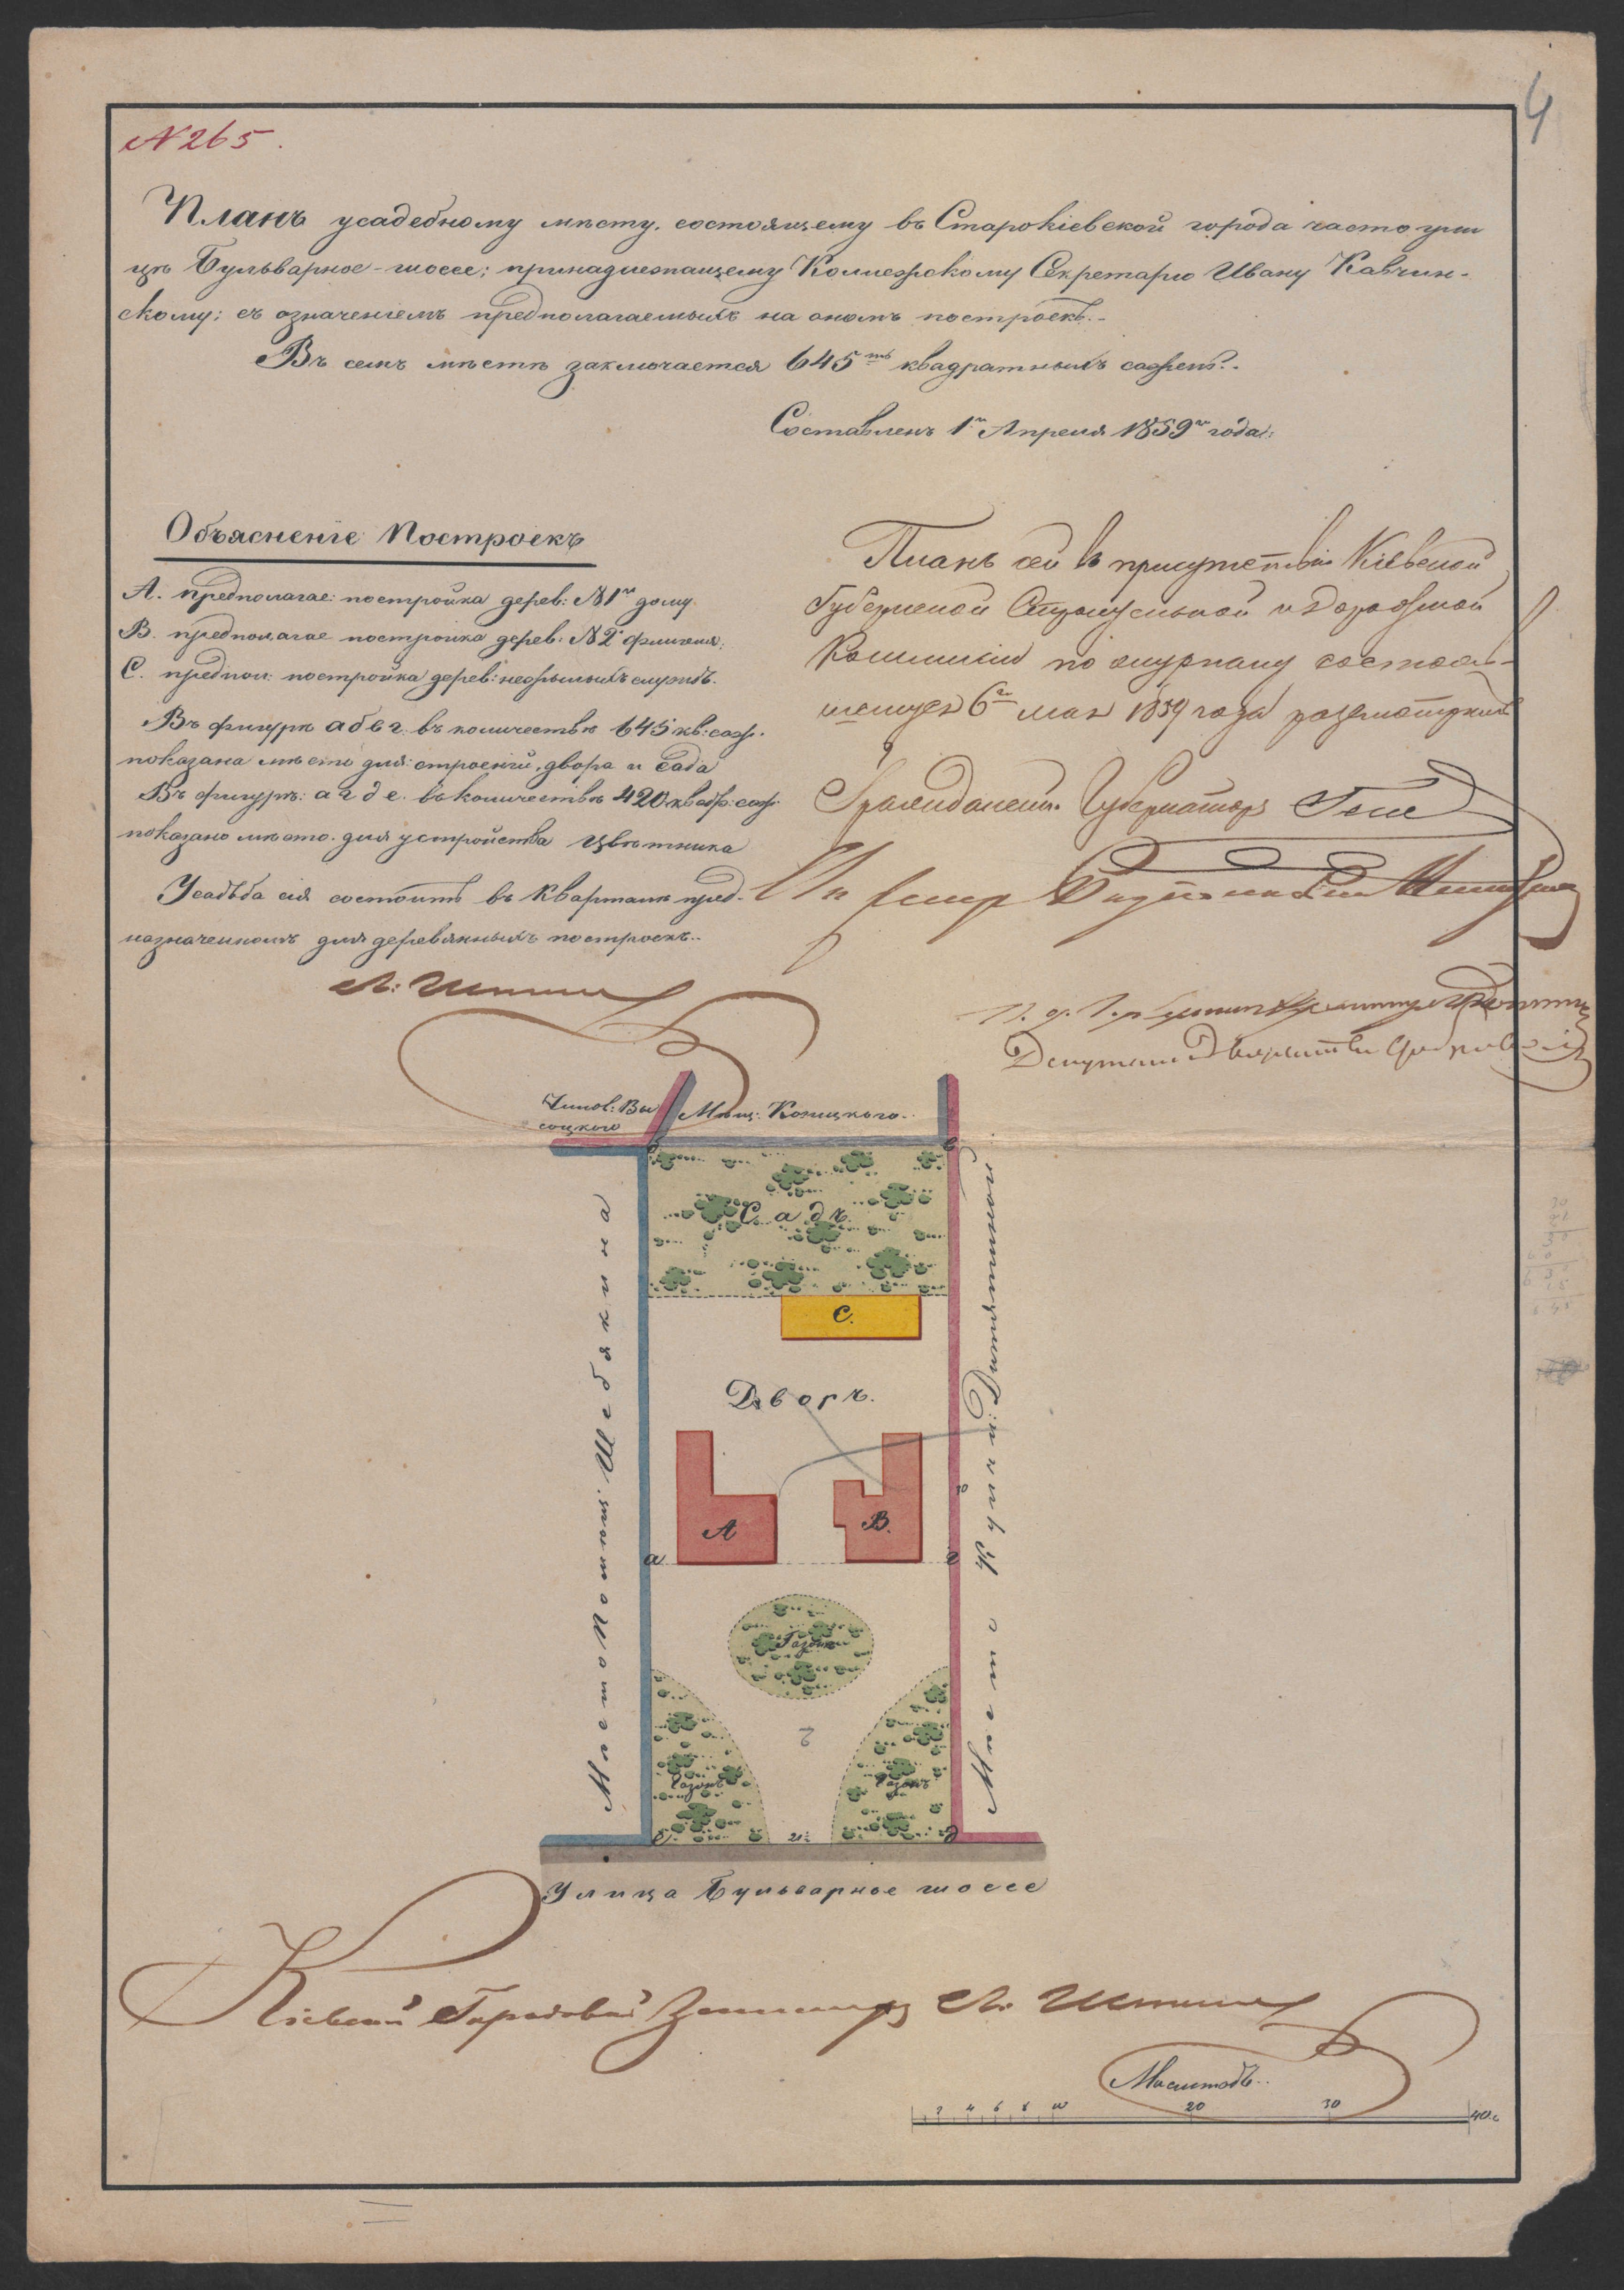 4
№ 265.
Планъ усадебному мѣсту, состоящему въ Старокіевской города части ули
цѣ Бульварное-шоссе; принадлежащему Коллежскому Секретарю Ивану Кавчин-
скому; съ означеніемъ предполагаемыхъ на ономъ построекъ.-
Въ семъ мѣстѣ заключается 645ть квадратныхъ сажень.-
Составленъ 1го Апреля 1859го года.
Объясненіе Построекъ
А. предполагае: постройка дерев: №1го дому.
В. предполагае постройка дерев: №2го флигеля.
С. предпол: постройка дерев: нежилыхъ службъ.
Въ фигурѣ а б в г. въ количествѣ 645 кв: саж.
показана мѣсто для: строеній, двора и сада
Въ фигурѣ: а г д е. въ количествѣ 420 квадр: саж.
показано мѣсто для устройства цвѣтника
Усадьба сія состоитъ въ Кварталѣ пред-
назначенномъ для деревянныхъ построекъ..
Планъ сей въ присутствіи Кіевской
Губернской Строительной и Дорожной
Коммисіи по журналу состояв-
шемуся 6го мая 1859 года разсмотренъ
Гражданскій Губернаторъ Гессе
Депутатъ Дворянства
Чинов: Вы
соцкого
Мѣщ: Козицкого.
б
в
Садъ.
С.
Дворъ.
А
В.
а
г
Газонъ
Газонъ
Газонъ
е
21
д
Мѣсто Помѣщ: Шебякина
Мѣсто Купч:
Улица Бульварное шоссе
Кіевскій Городовой Землемеръ Л.
Масштабъ..
2 4 6 8 10 20 30 40 с